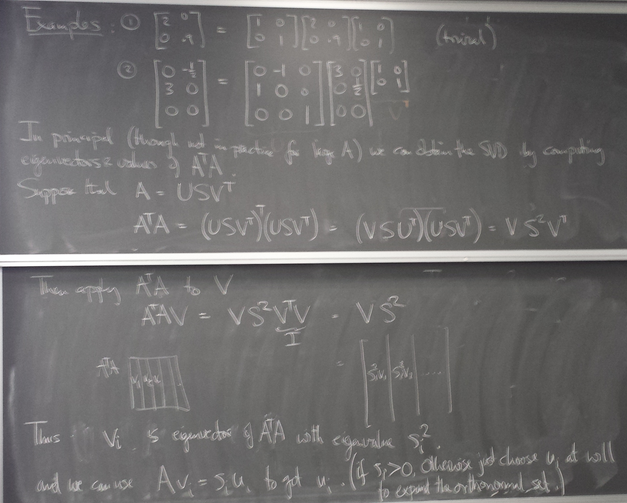 Examples: ① [2 0; 0 .9] = [1 0; 0 1] [2 0; 0 .9] [1 0; 0 1] (trivial)
② [0 -½; 3 0; 0 0] = [0 -1 0; 1 0 0; 0 0 1] [3 0; 0 ½; 0 0] [1 0; 0 1]
In principal (though not in practice for large A) we can obtain the SVD by computing
eigenvectors & values of AᵀA.
Suppose that A = USVᵀ
AᵀA = (USVᵀ)ᵀ(USVᵀ) = (VSUᵀ)(USVᵀ) = VS²Vᵀ
Then apply AᵀA to V
AᵀAV = VS²VᵀV = VS²
I
AᵀA = [s₁²v₁ | s₂²v₂ | ....]
Thus vᵢ is eigenvector of AᵀA with eigenvalue sᵢ².
and we can use Avᵢ = sᵢuᵢ to get uᵢ. (if sᵢ>0. Otherwise just choose uᵢ at will
to expand the orthonormal set.)